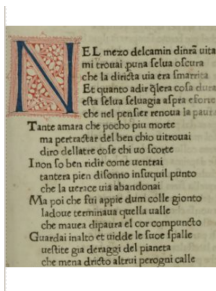 NEL mezo delcamin dinrã uita
mi trouai puna selua oscura
che la diricta uia era smarrita
Et quanto adir q̃lera cosa dura
esta selua seluagia aspra eforte
che nel pensier renoua la paura
Tante amara che pocho piu morte
ma pertractar del ben chio uitrouai
diro dellatre cose chi uo scorte
I non so ben ridir come uentrai
tantera pien disonno insuquil punto
che la uerace uia abandonai
Ma poi che fui appie dum colle gionto
ladoue terminaua quella ualle
che mauea dipaura el cor compuncto
Guardai inalto et uidde le sue spalle
uestite gia deraggi del pianeta
che mena dricto altrui perogni calle